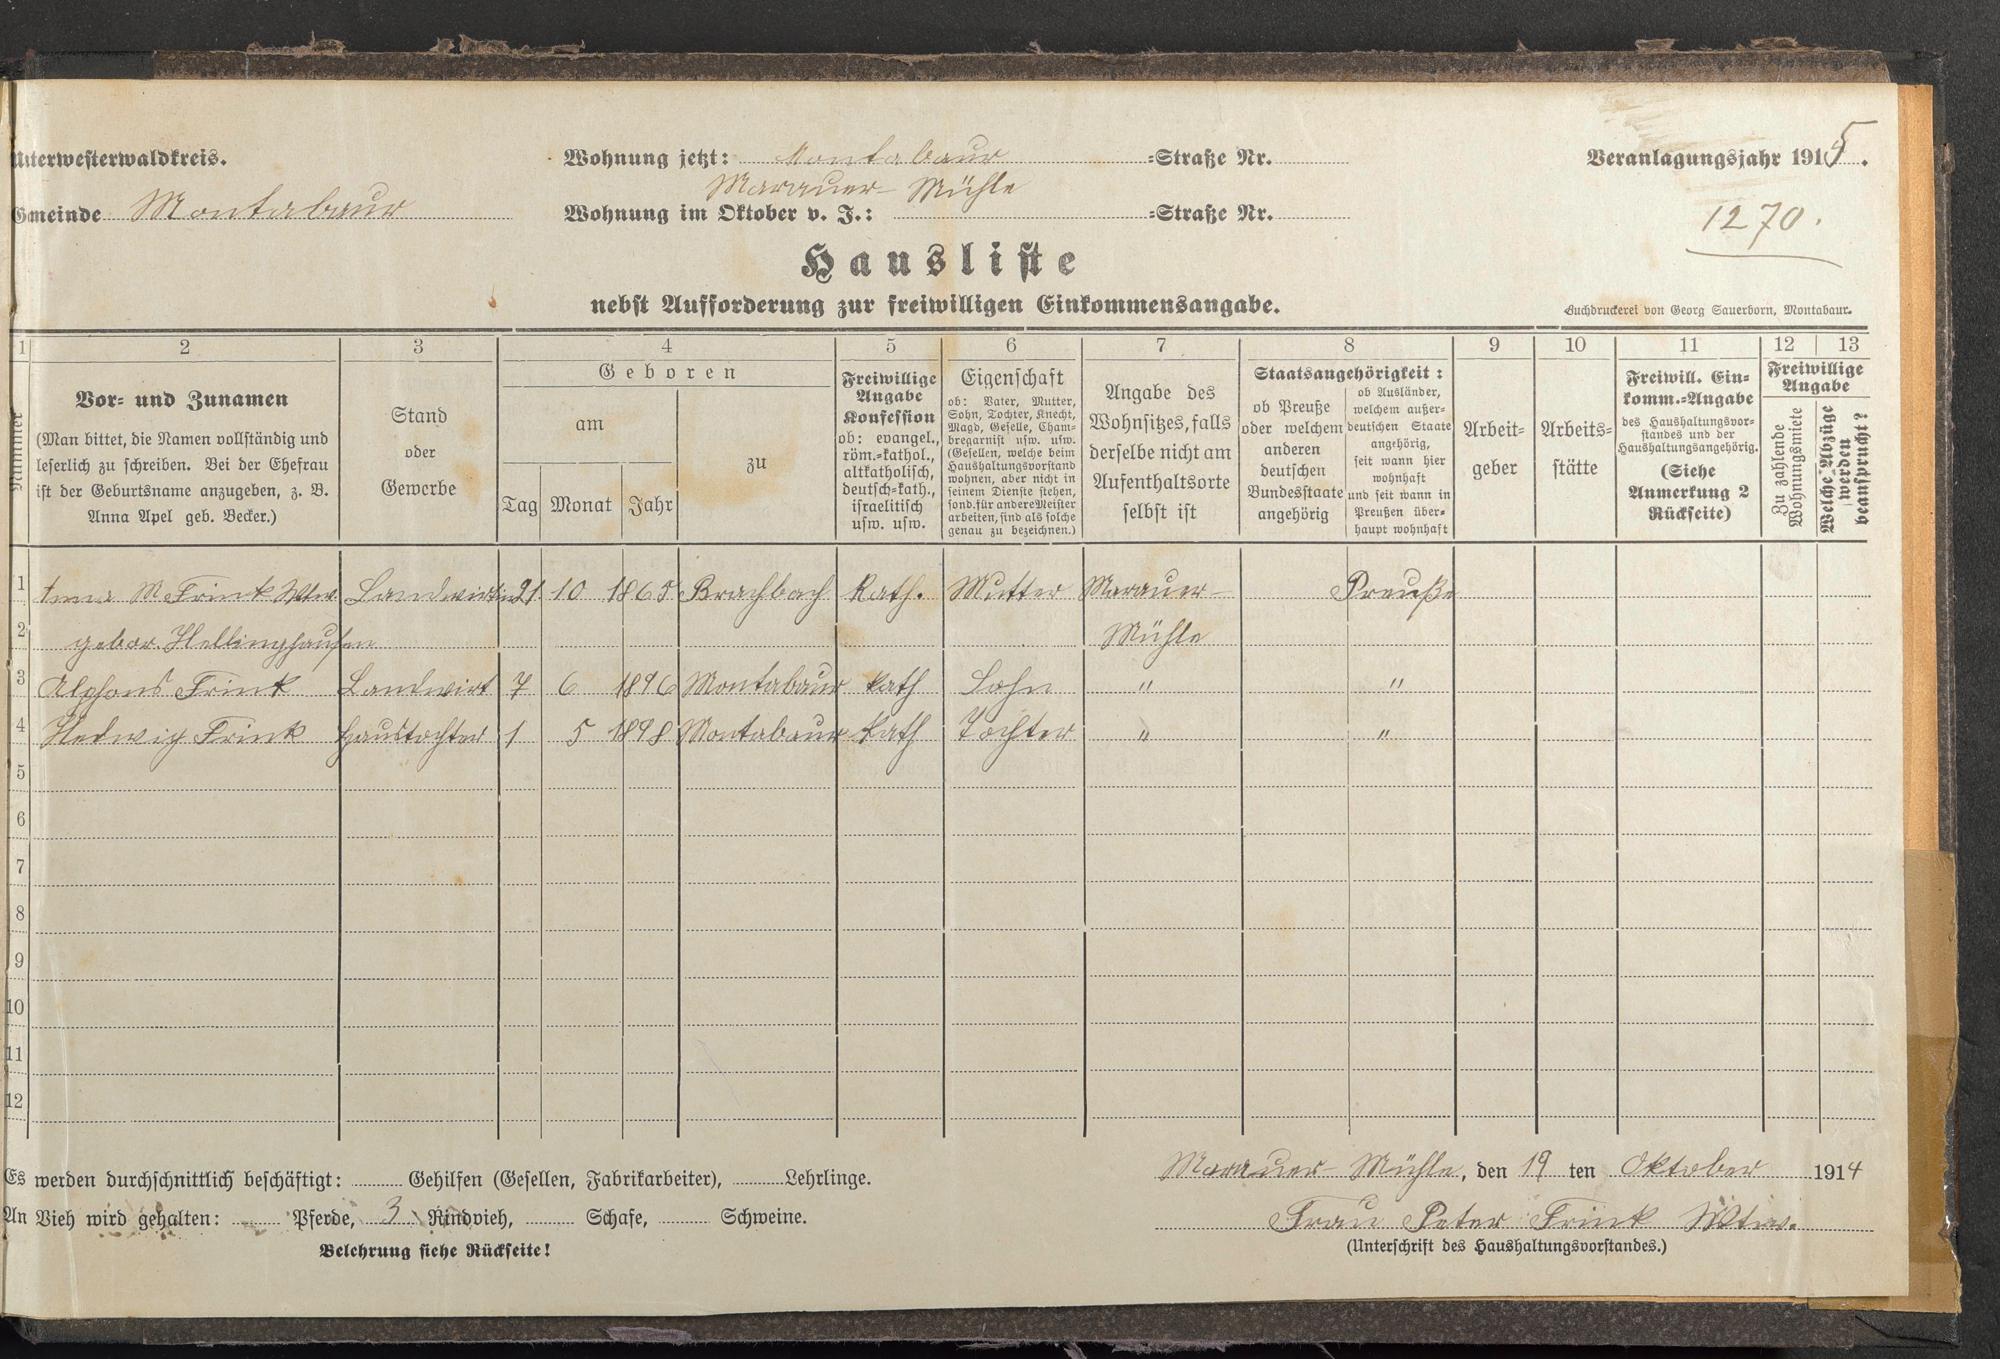 Unterwesterwaldkreis.
Wohnung jetzt: Montabaur =Straße Nr.
Veranlagungsjahr 1915.
Marauer-Mühle
Gemeinde Montabaur
Wohnung im Oktober v. J.: =Straße Nr.
1270.
Hausliste
nebst Aufforderung zur freiwilligen Einkommensangabe.
Buchdruckerei von Georg Sauerborn, Montabaur.
1 2 3 4 5 6 7 8 9 10 11 12 13
Nummer
Vor- und Zunamen
(Man bittet, die Namen vollständig und
leserlich zu schreiben. Bei der Ehefrau
ist der Geburtsname anzugeben, z. B.
Anna Apel geb. Becker.)
Stand
oder
Gewerbe
Geboren
am
Tag Monat Jahr
zu
Freiwillige
Angabe
Konfession
ob: evangel.,
röm.=kathol.,
altkatholisch,
deutsch=kath.,
israelitisch
usw. usw.
Eigenschaft
ob: Vater, Mutter,
Sohn, Tochter, Knecht,
Magd, Geselle, Cham-
bregarnist usw. usw.
(Gesellen, welche beim
Haushaltungsvorstand
wohnen, aber nicht in
seinem Dienste stehen,
sond. für andere Meister
arbeiten, sind als solche
genau zu bezeichnen.)
Angabe des
Wohnsitzes, falls
derselbe nicht am
Aufenthaltsorte
selbst ist
Staatsangehörigkeit:
ob Preuße
oder welchem
anderen
deutschen
Bundesstaate
angehörig
ob Ausländer,
welchem außer-
deutschen Staate
angehörig,
seit wann hier
wohnhaft
und seit wann in
Preußen über-
haupt wohnhaft
Arbeit-
geber
Arbeits-
stätte
Freiwill. Ein-
komm.=Angabe
des Haushaltungsvor-
standes und der
Haushaltungsangehörig.
(Siehe
Anmerkung 2
Rückseite)
Freiwillige
Angabe
Zu zahlende
Wohnungsmiete
Welche Abzüge
werden
beansprucht?
1 Anna M. Frink Wtw. Landwirtin 21 10 1865 Brachbach Kath. Mutter Marauer- Preuße
2 gebor. Hellinghausen Mühle
3 Alphons Frink Landwirt 7 6 1896 Montabaur Kath Sohn " "
4 Hedwig Frink Haustochter 1 5 1898 Montabaur Kath Tochter " "
5
6
7
8
9
10
11
12
Es werden durchschnittlich beschäftigt: Gehilfen (Gesellen, Fabrikarbeiter), Lehrlinge.
Marauer-Mühle, den 19 ten Oktober 1914
An Vieh wird gehalten: Pferde, 3 Rindvieh, Schafe, Schweine.
Frau Peter Frink Wtw.
Belehrung siehe Rückseite!
(Unterschrift des Haushaltungsvorstandes.)